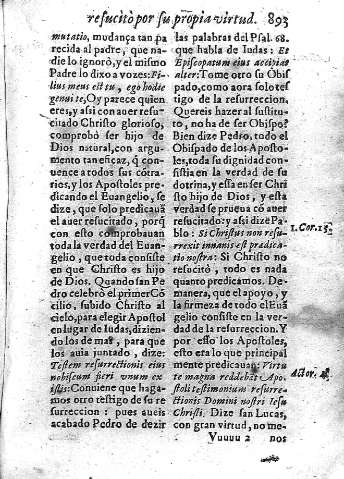 resucitò por su propia virtud. 893
mutatio, mudança tan pa
recida al padre, que na-
die lo ignorò, y el mismo
Padre lo dixo a vozes: Fi-
lius meus est tu, ego hodie
genui te, Oy parece quien
eres, y assi con auer resu-
citado Christo glorioso,
comprobó ser hijo de
Dios natural, con argu-
mento tan eficaz, q̃ con-
uence a todos sus cõtra-
rios, y los Apostoles pre-
dicando el Euangelio, se
dize, que solo predicauã
el auer resucitado, porq̃
con esto comprobauan
toda la verdad del Euan-
gelio, que toda consiste
en que Christo es hijo
de Dios. Quando san Pe
dro celebrò el primer Cõ
cilio, subido Christo al
cielo, para elegir Apostol
en lugar de Iudas, dizien-
do los de mas, para que
los auia juntado, dize:
Testem resurrectionis eius
nobiscum fieri vnum ex
istis: Conuiene que haga-
mos otro testigo de su re
surreccion: pues aueis
acabado Pedro de dezir
las palabras del Psal. 68.
que habla de Iudas: Et
Episcopatum eius accipiat
alter: Tome otro su Obis
pado, como aora solo tes-
tigo de la resurreccion.
Quereis hazer al sustitu-
to, no ha de ser Obispo?
Bien dize Pedro, todo el
Obispado de los Aposto-
les, toda su dignidad con-
sistia en la verdad de su
dotrina, y essa en ser Chri
sto hijo de Dios, y esta
verdad se prueua cõ auer
resucitado: y assi dize Pa-
blo: Si Christus non resu-
rrexit innanis est predica-
tio nostra: Si Christo no
resucitò, todo es nada
quanto predicamos. De-
manera, que el apoyo, y
la firmeza de todo el Euã
gelio consiste en la ver-
dad de la resurreccion. Y
por esso los Apostoles,
esto era lo que principal
mente predicauan: Virtu
te magna reddebãt Apo-
stoli testimonium resurre-
ctionis Domini nostri Iesu
Christi. Dize san Lucas,
con gran virtud, no me-
1. Cor. 15.
Actor.
Vuuuu 2 nos